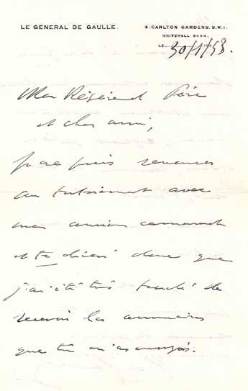 LE GÉNÉRAL DE GAULLE.
4, CARLTON GARDENS, S.W.1.
WHITEHALL
le
Mon Révérend Père
et cher ami,
Je ne puis renoncer
au tutoiement avec
mon ancien camarade
et te dirai donc que
j'ai été très touché de
recevoir les
que tu m'as